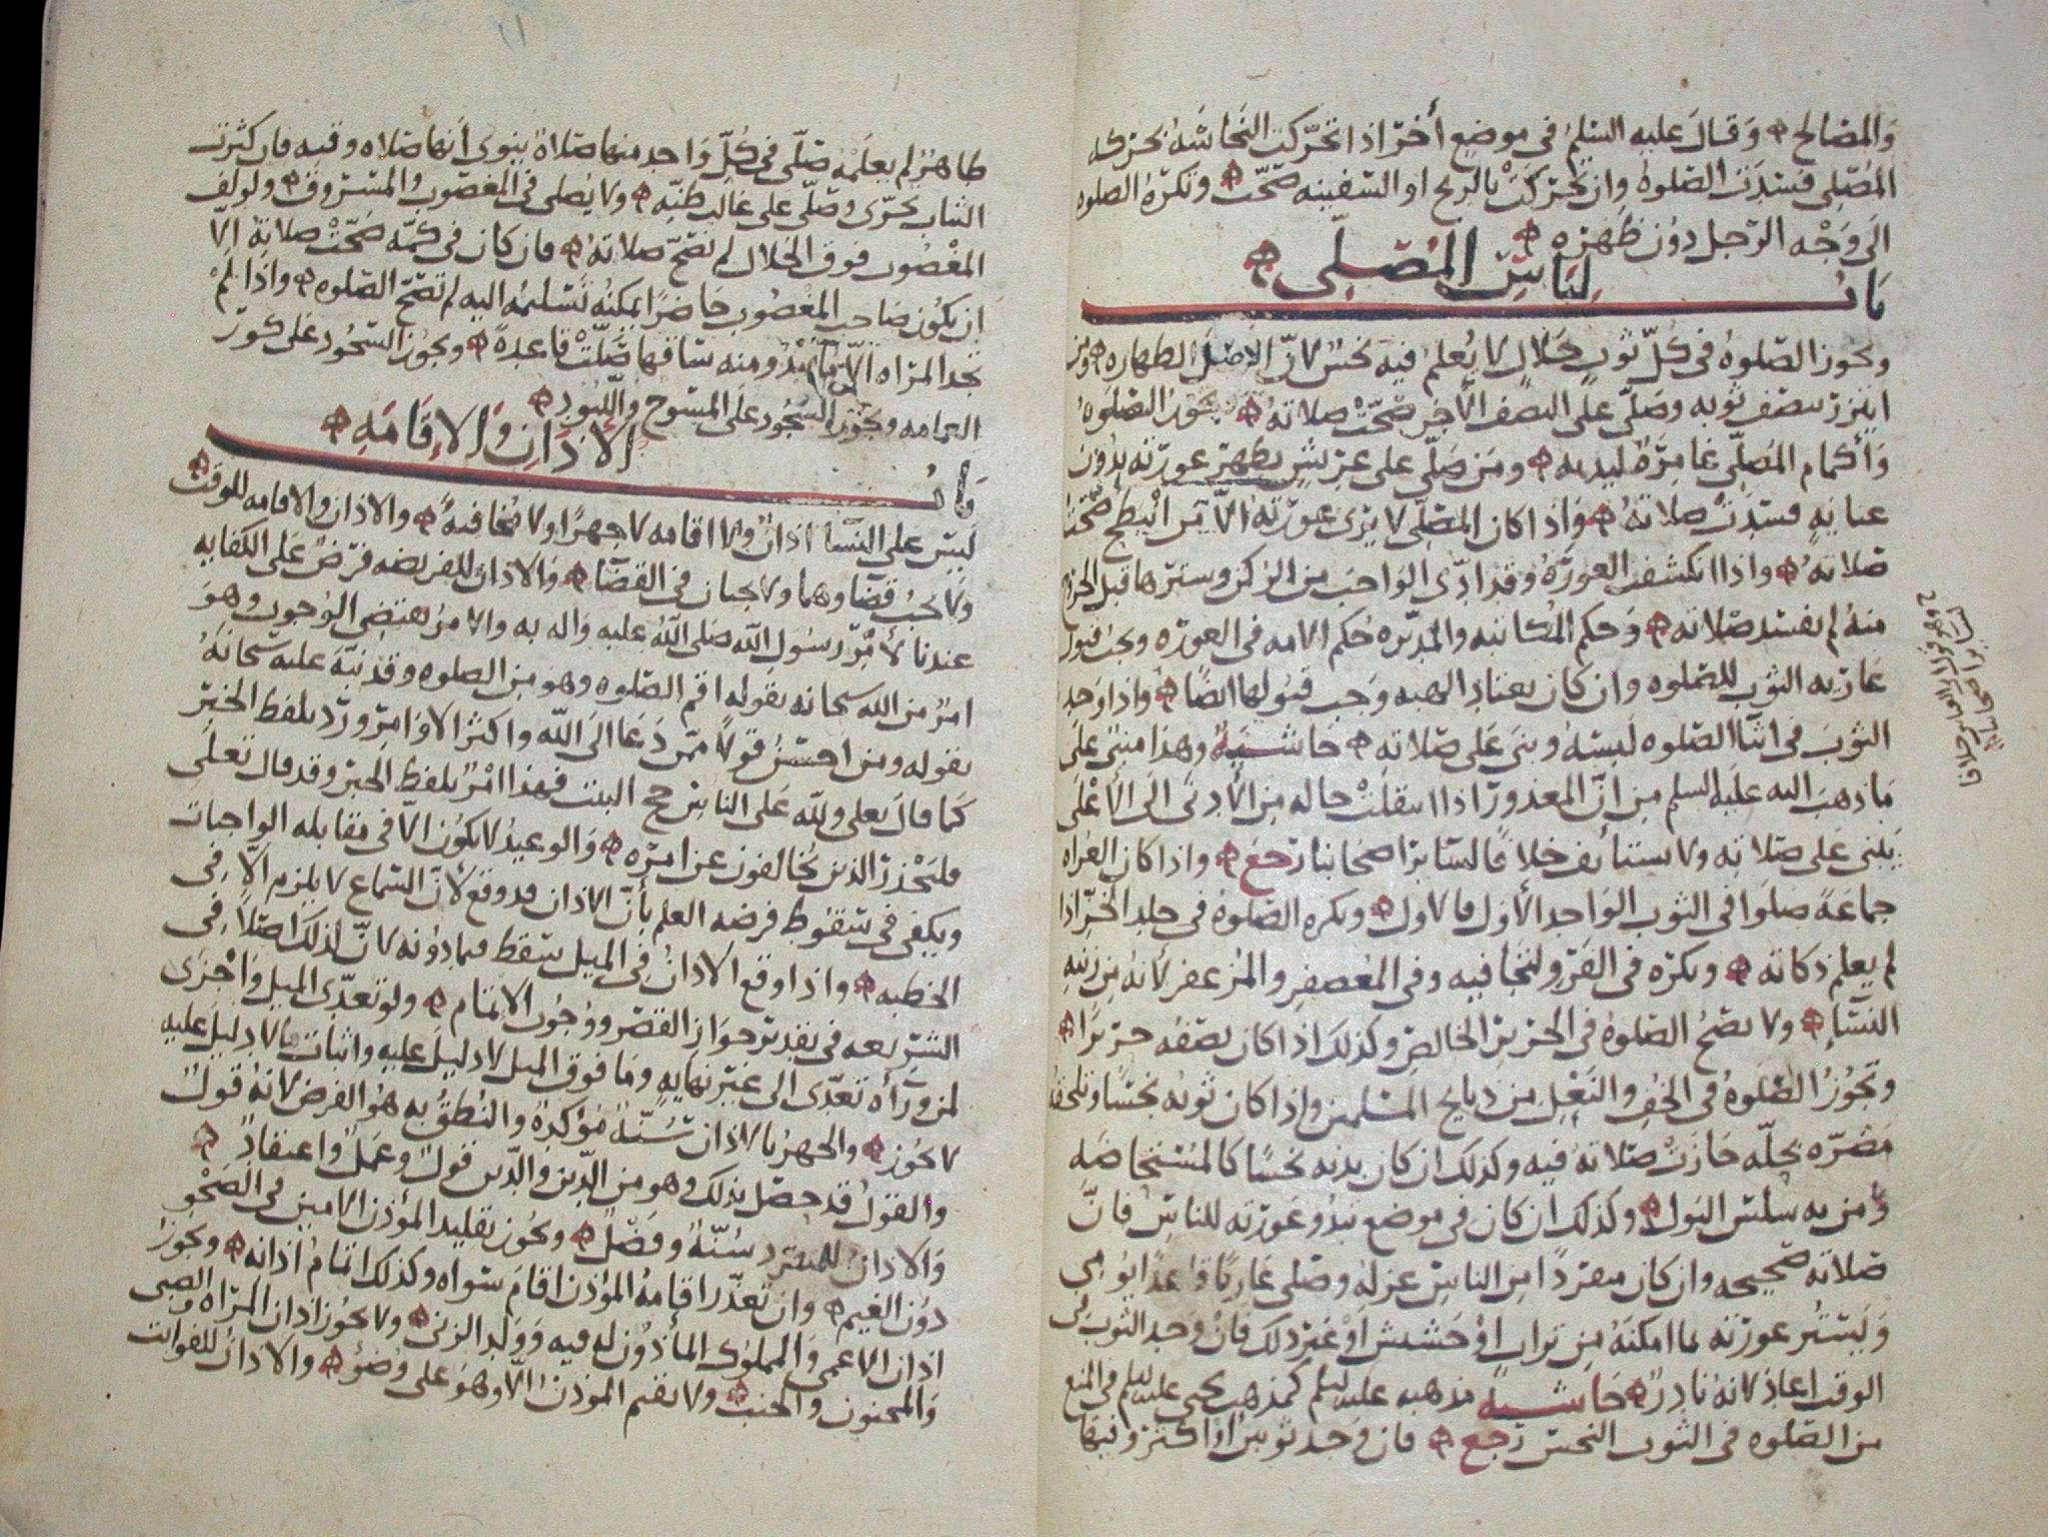 والمصالح وقال عليه السلم في موضع أخر اذا تحركت النجاسة بحركه
المصلي فسدت الصلوه وان تحركت بالريح او السفينه صحت وتكره الصلوه
الى وجه الرجل دون ظهره
باب لباس المصلي
وتجوز الصلوه في كل ثوب حلال لا يعلم فيه نجس لان الاصل الطهاره ومن
ايتزر بنصف ثوبه وصلى على النصف الأخر صحت صلاته تجوز الصلوه
وأكمام المصلي غامرة ليديه ومن صلى على عريش يظهر عورته بدون
عنايه فسدت صلاته واذا كان المصلي لا يرى عورته الا من انبطح صحت
صلاته واذا انكشفت العورة وقد ادى الواجب من الركن وسترها قبل الخروج
منه لم يفسد صلاته وحكم المكاتبه والمدبره حكم الامه في العوره ويجب قبول
عاريه الثوب للصلوه وان كان يعتاد الهبه وجب قبولها ايضا واذا وجد
الثوب في اثنا الصلوه لبسه وبنى على صلاته حاشية وهذا مبني على
ما ذهب اليه عليه السلم من ان المعذور اذا انتقلت حاله من الأدنى الى الأعلى
يبني على صلاته ولا يستأنف خلافا لسائر اصحابنا رجع واذا كان العراه
جماعة صلوا في الثوب الواحد الأول فالاول وتكره الصلوة في جلد الخز اذا
لم يعلم ذكاته وتكره في القز ولتجافيه وفي المعصفر والمزعفر لأنه من زينه
النساء ولا تصح الصلوة في الحرير الخالص وكذلك اذا كان نصفه حريرا
وتجوز الصلوة في الخف والنعل من ذبايح المسلمين واذا كان ثوبه نجسا وتلحقه
مضره بحله جازت صلاته فيه وكذلك ان كان بدنه نجسا كالمستحاضه
ومن به سلس البول وكذلك ان كان في موضع تبدو عورته للناس فان
صلاته صحيحه وان كان منفردا من الناس عزله وصلى عاريا قاعدا يومي
ويستتر عورته بما امكنه من تراب او حشيش او غير ذلك فان وجد الثوب في
الوقت اعاد لانه نادر حاشية مذهبه عليه السلم كمذهب يحيى عليه السلم في المنع
من الصلوه في الثوب النجس رجع فان وجد ثوبين او اكثر وفيها
طاهر لم يعلمه صلى في كل واحد منها صلاة ينوي أنها صلاه وقته فان كثرت
الثياب تحرى وصلى على غالب ظنه ولا يصلى في المغصوب والمسروق ولو لف
المغصوب فوق الحلال لم تصح صلاته فان كان في كمه صحت صلاته الا
ان يكون صاحب المغصوب حاضرا يمكنه تسليمه اليه لم تصح الصلوه واذا لم
تجد المراه الا ما يبدو منه ساقها صلت قاعدة ويجوز السجود على كور
العمامه ويجوز السجود على المسوح واللبود
باب الاذان والاقامه
ليس على النسا اذان ولا اقامه لا جهرا ولا مخافتة والاذان والاقامه للوقت
ولا يجب قضاوهما ولا يجبان في القضا والاذان للفريضه فرض على الكفايه
عندنا لأمر رسول الله صلى الله عليه واله به والامر يقتضي الوجوب وهو
امر من الله سبحانه بقوله اقم الصلوه وهو من الصلوه وقد نبه عليه سبحانه
بقوله ومن احسن قولا ممن دعا الى الله واكثر الاوامر ورد بلفظ الخبر
كما قال تعلى ولله على الناس حج البيت فهذا امر بلفظ الخبر وقد قال تعلى
فليحذر الذين يخالفون عن امره والوعيد لا يكون الا في مقابله الواجبات
ويكفي في سقوط فرضه العلم بأن الاذان قد وقع لأن السماع لا يلزم الا في
الخطبه واذا وقع الاذان في الميل سقط فيما دونه لان لذلك اصلا في
الشريعه في تقدير جواز القصر ووجوب الاتمام ولو تعدى الميل واجزى
لمن وراه تعدى الى غير نهايه وما فوق الميل لا دليل عليه واثبات ما لا دليل عليه
لا يجوز والجهر بالاذان سنة مؤكدة والنطق به هو الفرض لانه قول
والقول قد حصل بذلك وهو من الدين والدين قول وعمل واعتقاد
والاذان للمنفرد سنة وفضل ويجوز تقليد المؤذن الامين في الصحو
دون الغيم وان تعذر اقامة المؤذن اقام سواه وكذلك اتمام اذانه ويجوز
اذان الاعمى والمملوك المأذون له فيه وولد الزنى ولا يجوز اذان المراه والصبي
والمجنون والجنب ولا يقيم الموذن الا وهو على وضوء والاذان للفوايت